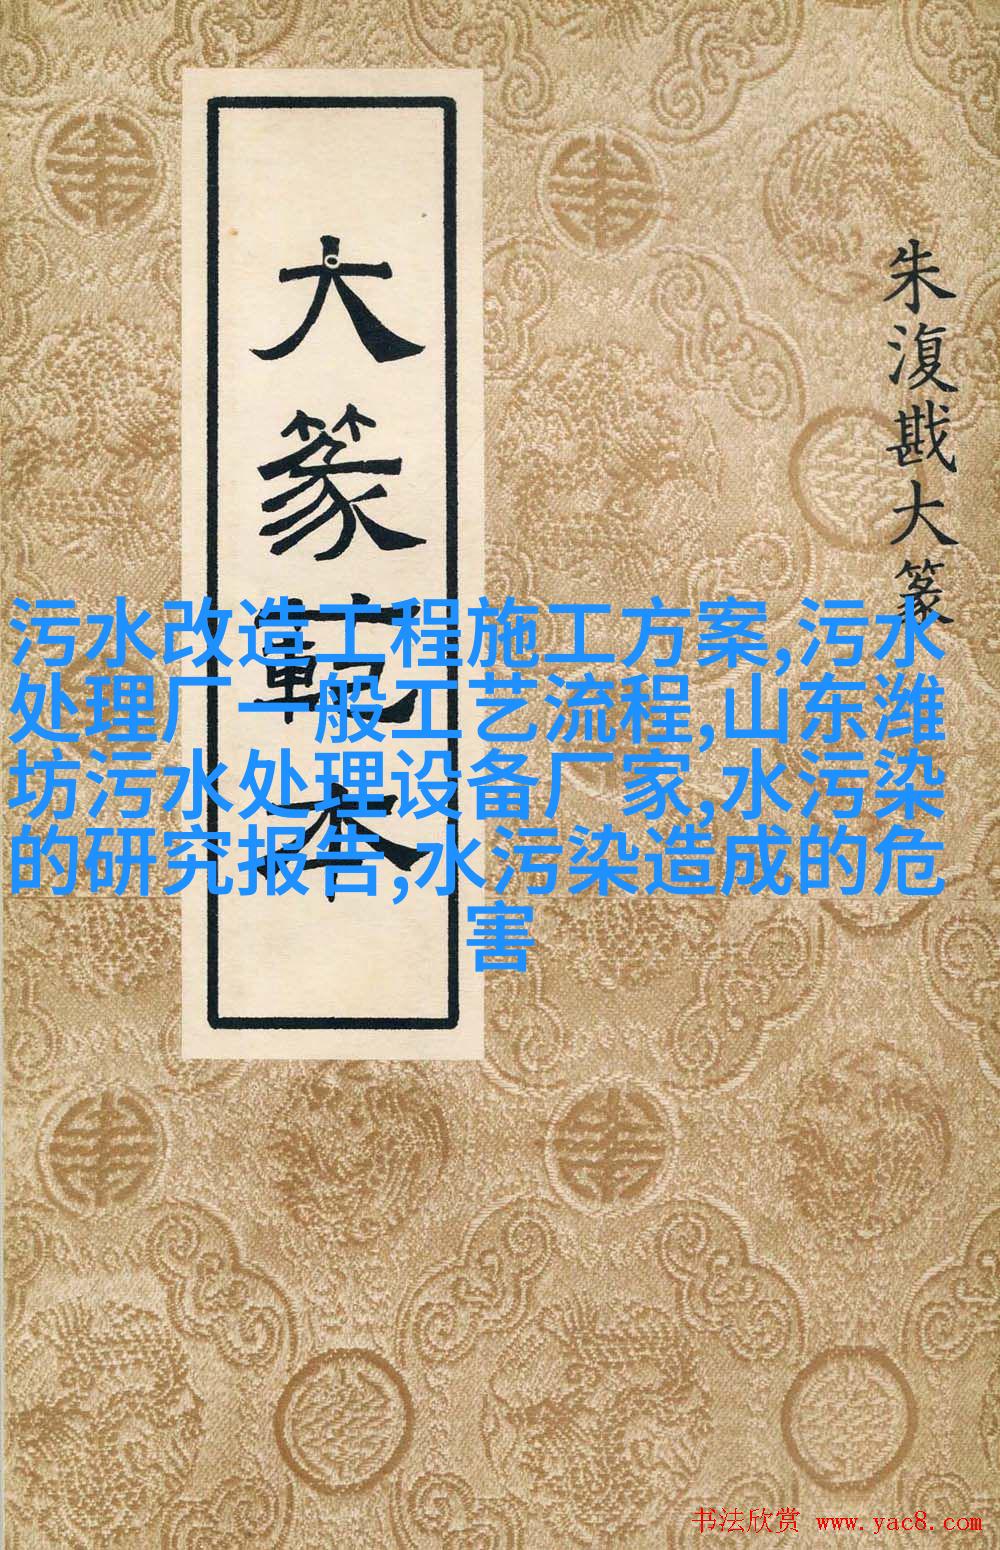 大篆範本
朱復戡大篆
污水改造工程施工方案,污水
处理厂一般工艺流程,山东潍
坊污水处理设备厂家,水污染
的研究报告,水污染造成的危
害
书法欣赏 www.yac8.com